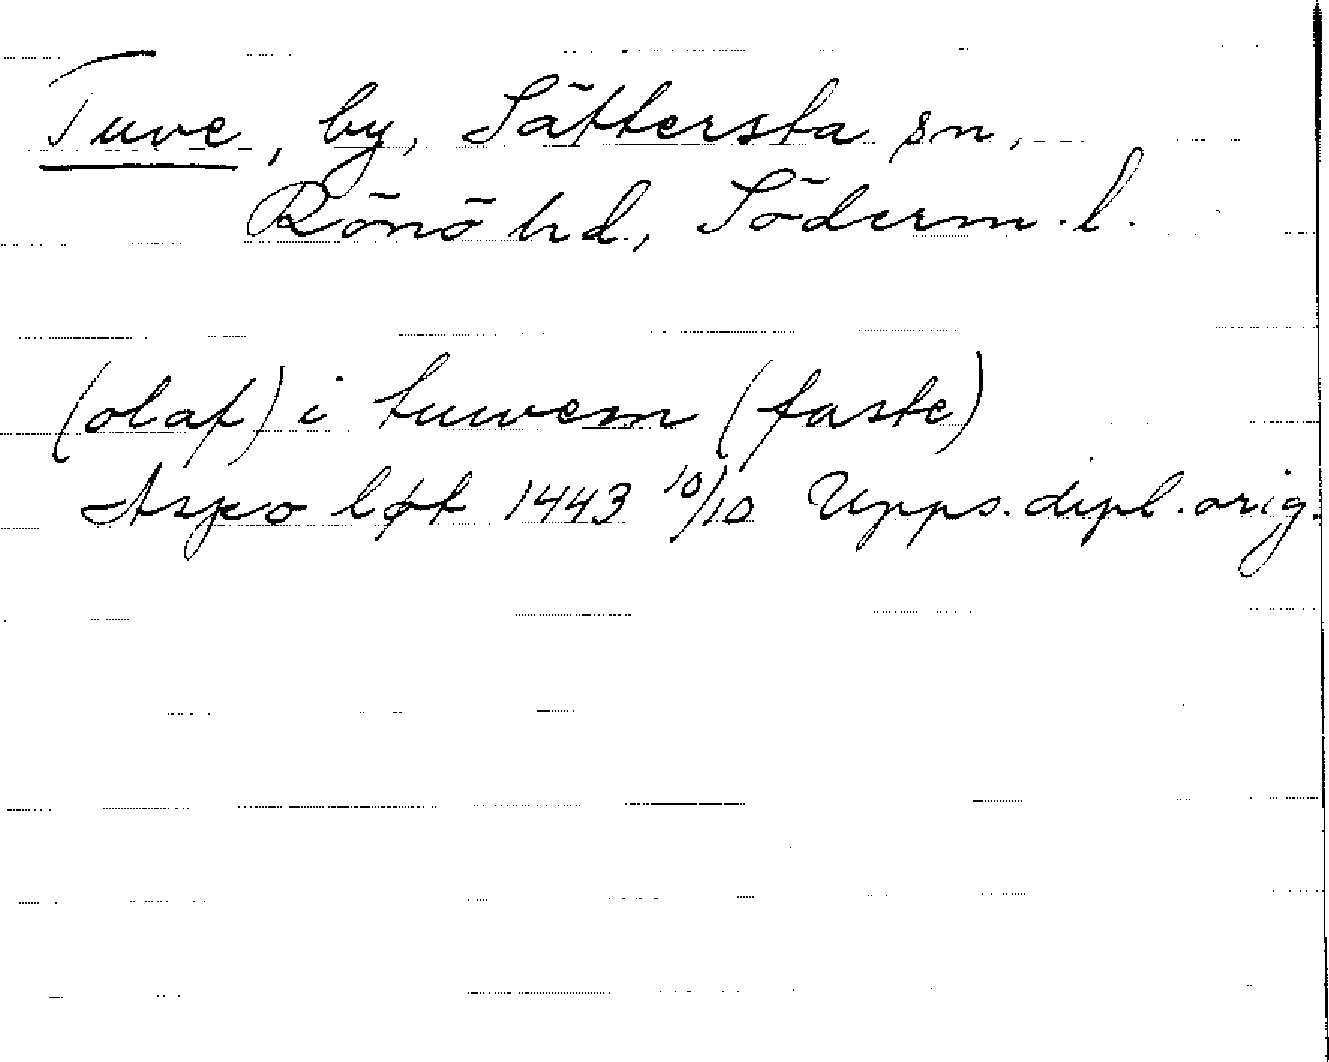 Tuve, by, Sättersta sn,
Rönö hd, Söderm. l.
(olaf) i tuwem (faste)
Aspo løt 1443 10/10 Upps. dipl. orig.